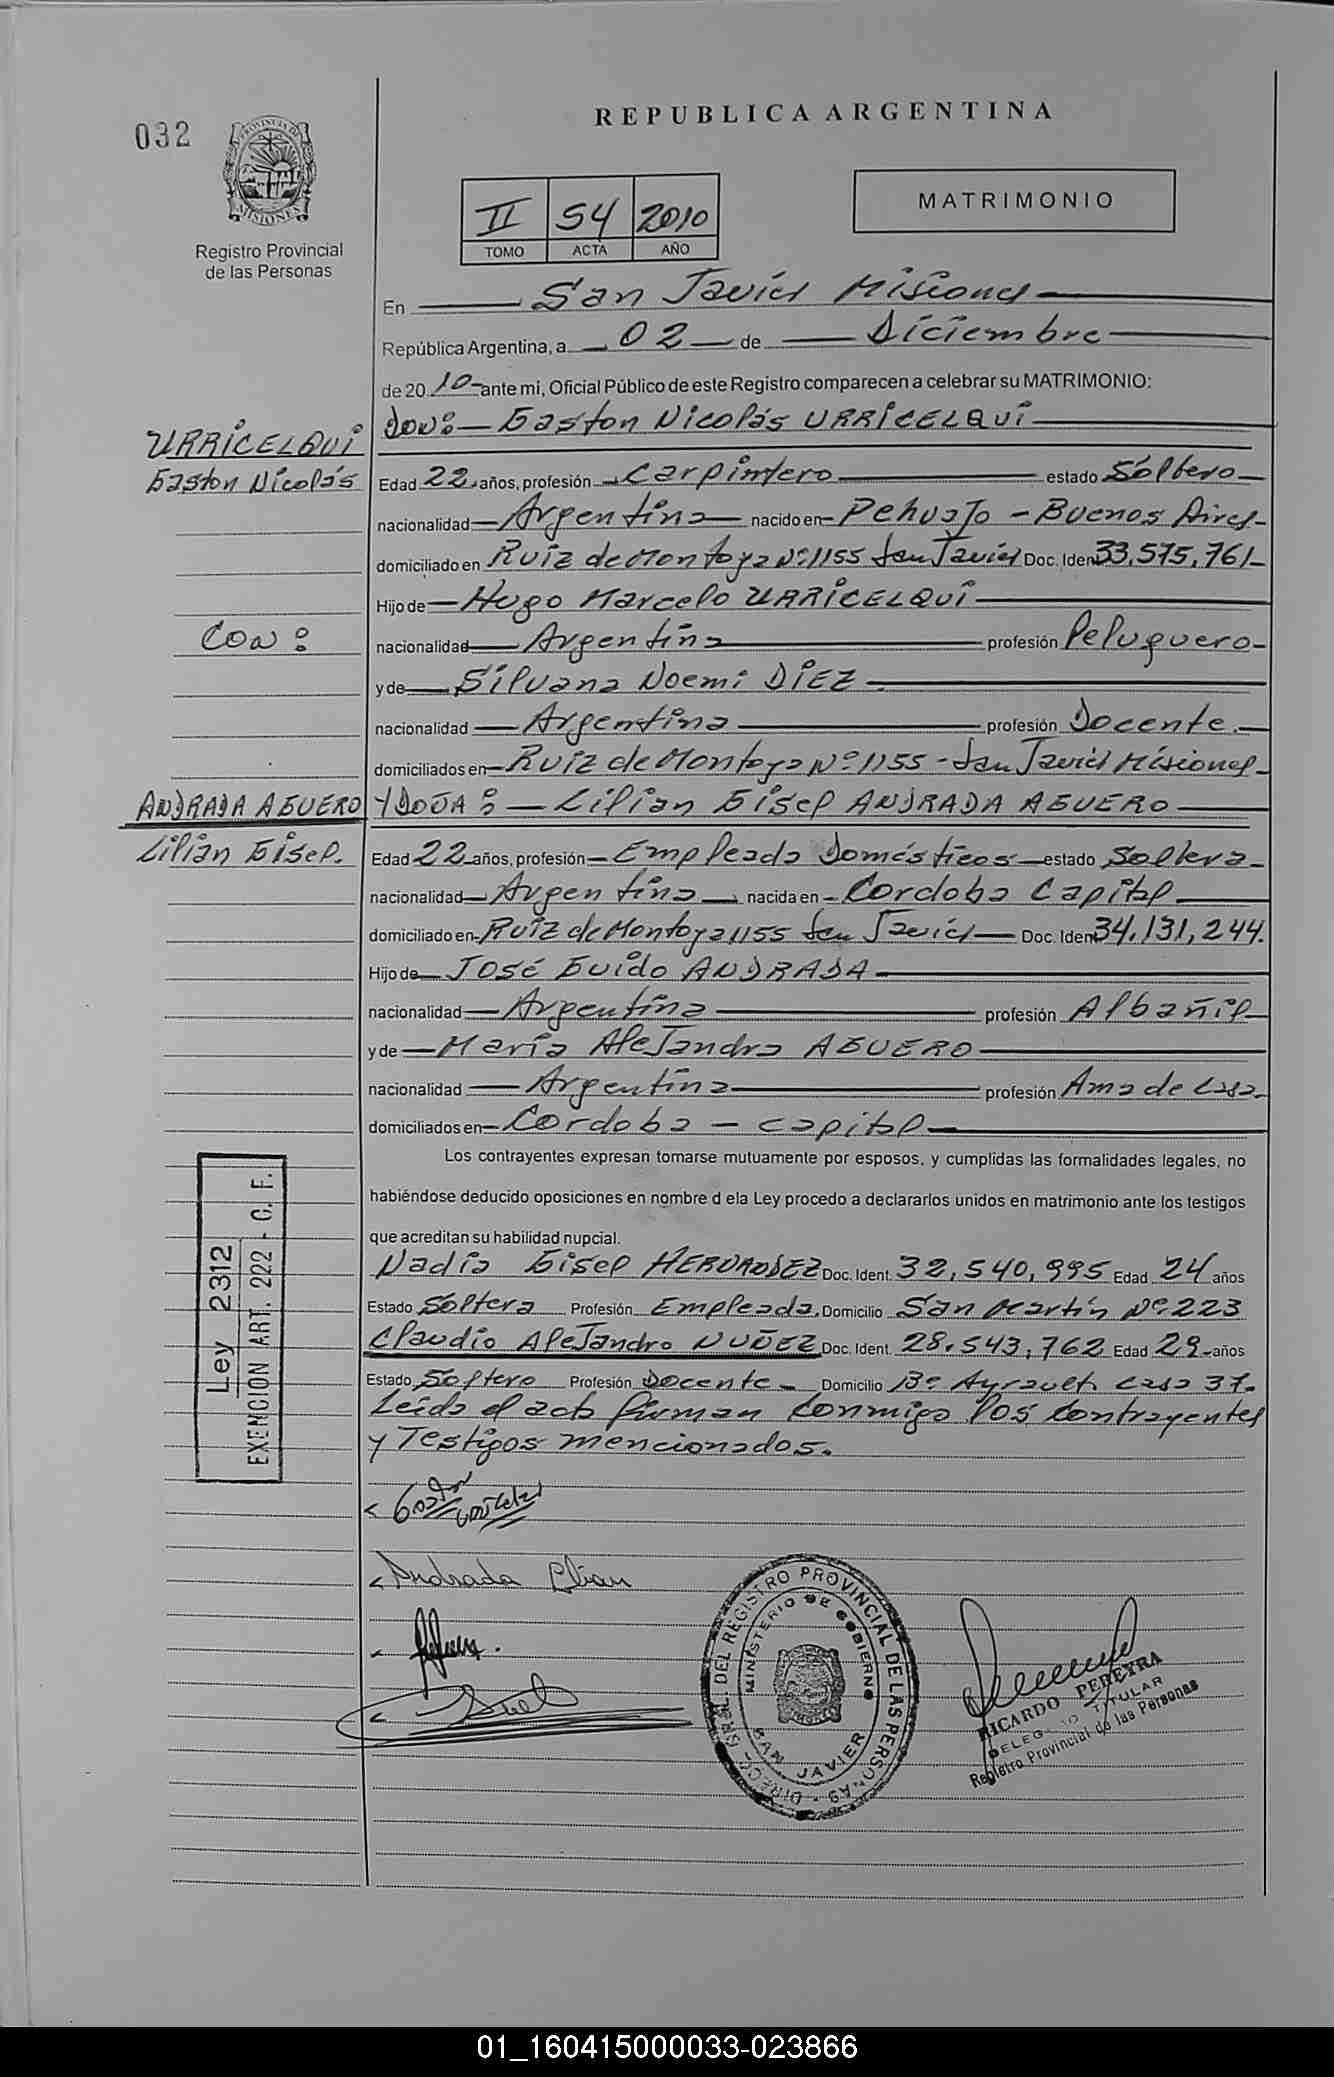 032
PROVINCIA DE
MISIONES
Registro Provincial
de las Personas
REPUBLICA ARGENTINA
II 54 2010
TOMO ACTA AÑO
MATRIMONIO
En San Javier Misiones
República Argentina, a 02 de Diciembre
de 20 10 ante mi, Oficial Público de este Registro comparecen a celebrar su MATRIMONIO:
URRICELQUI
Gaston Nicolás
DON: Gaston Nicolás URRICELQUI
Edad 22 años, profesión Carpintero estado Soltero
nacionalidad Argentina nacido en Pehuajo - Buenos Aires
domiciliado en Ruiz de Montoya Nº 1155 San Javier Doc. Iden 33.575.761
Hijo de Hugo Marcelo URRICELQUI
Con:
nacionalidad Argentina profesión Peluquero
y de Silvana Noemi DIEZ
nacionalidad Argentina profesión Docente
domiciliados en Ruiz de Montoya Nº 1155 - San Javier Misiones
ANDRADA AGUERO
Lilian Gisel.
Y DOÑA: Lilian Gisel ANDRADA AGUERO
Edad 22 años, profesión Empleada Domésticos estado Soltera
nacionalidad Argentina nacida en Cordoba Capital
domiciliado en Ruiz de Montoya 1155 San Javier Doc. Iden 34.131.244.
Hijo de José Guido ANDRADA
nacionalidad Argentina profesión Albañil
y de María Alejandra AGUERO
nacionalidad Argentina profesión Ama de casa
domiciliados en Cordoba - capital
Los contrayentes expresan tomarse mutuamente por esposos, y cumplidas las formalidades legales, no
habiéndose deducido oposiciones en nombre d ela Ley procedo a declararlos unidos en matrimonio ante los testigos
que acreditan su habilidad nupcial.
Nadia Gisel HERNANDEZ Doc. Ident. 32.540.995 Edad 24 años
Estado Soltera Profesión Empleada. Domicilio San Martín Nº 223
Claudio Alejandro NUÑEZ Doc. Ident. 28.543.762 Edad 29 años
Estado Soltero Profesión Docente Domicilio Bº Ayrault casa 37.
Leída el acta firman conmigo los contrayentes
y Testigos mencionados.
Ley 2312
EXENCION ART. 222 - C. F.
Andrada Lilian
DIRECC. GRAL. DEL REGISTRO PROVINCIAL DE LAS PERSONAS
MINISTERIO DE GOBIERNO
SAN JAVIER
RICARDO PEREYRA
DELEGADO TITULAR
Registro Provincial de las Personas
01_160415000033-023866